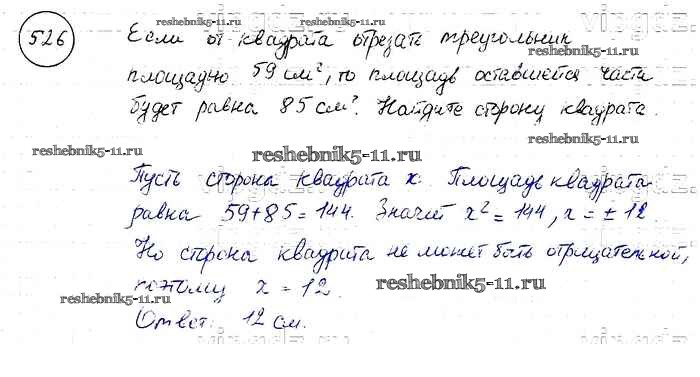 526
Если от квадрата отрезать треугольник
площадью 59 см², то площадь оставшейся части
будет равна 85 см². Найдите сторону квадрата.
Пусть сторона квадрата x. Площадь квадрата
равна 59+85=144. Значит x² = 144, x = ± 12.
Но сторона квадрата не может быть отрицательной,
поэтому x = 12.
Ответ: 12 см.
reshebnik5-11.ru
reshebnik5-11.ru
reshebnik5-11.ru
reshebnik5-11.ru
reshebnik5-11.ru
reshebnik5-11.ru
reshebnik5-11.ru
reshebnik5-11.ru